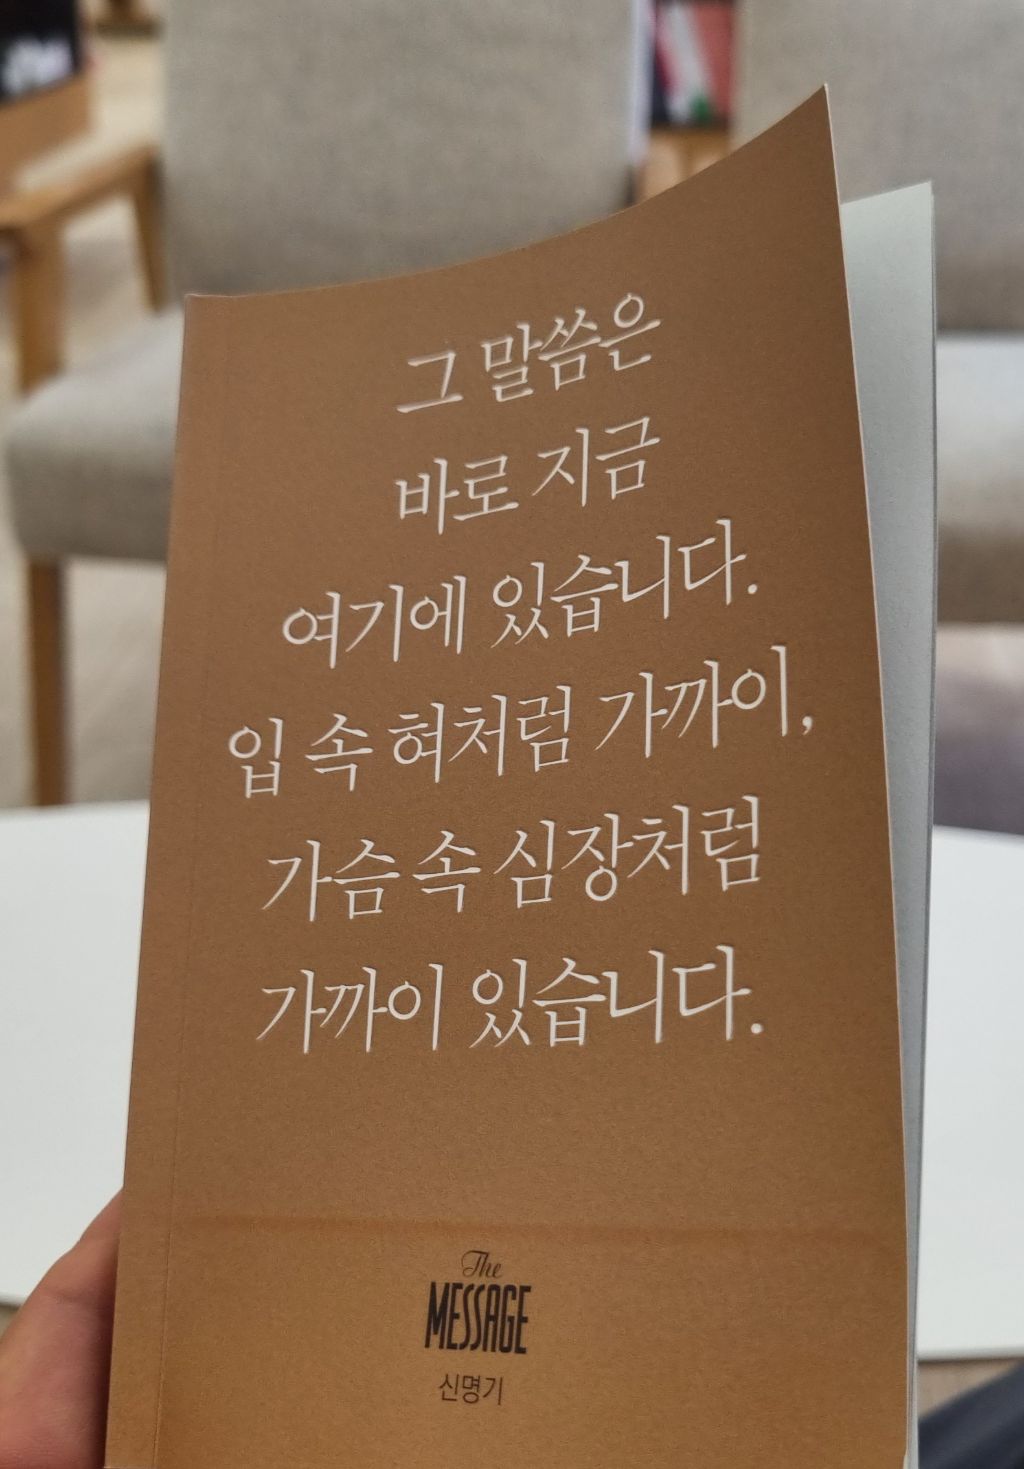 그 말씀은
바로 지금
여기에 있습니다.
입 속 혀처럼 가까이,
가슴 속 심장처럼
가까이 있습니다.
The
MESSAGE
신명기